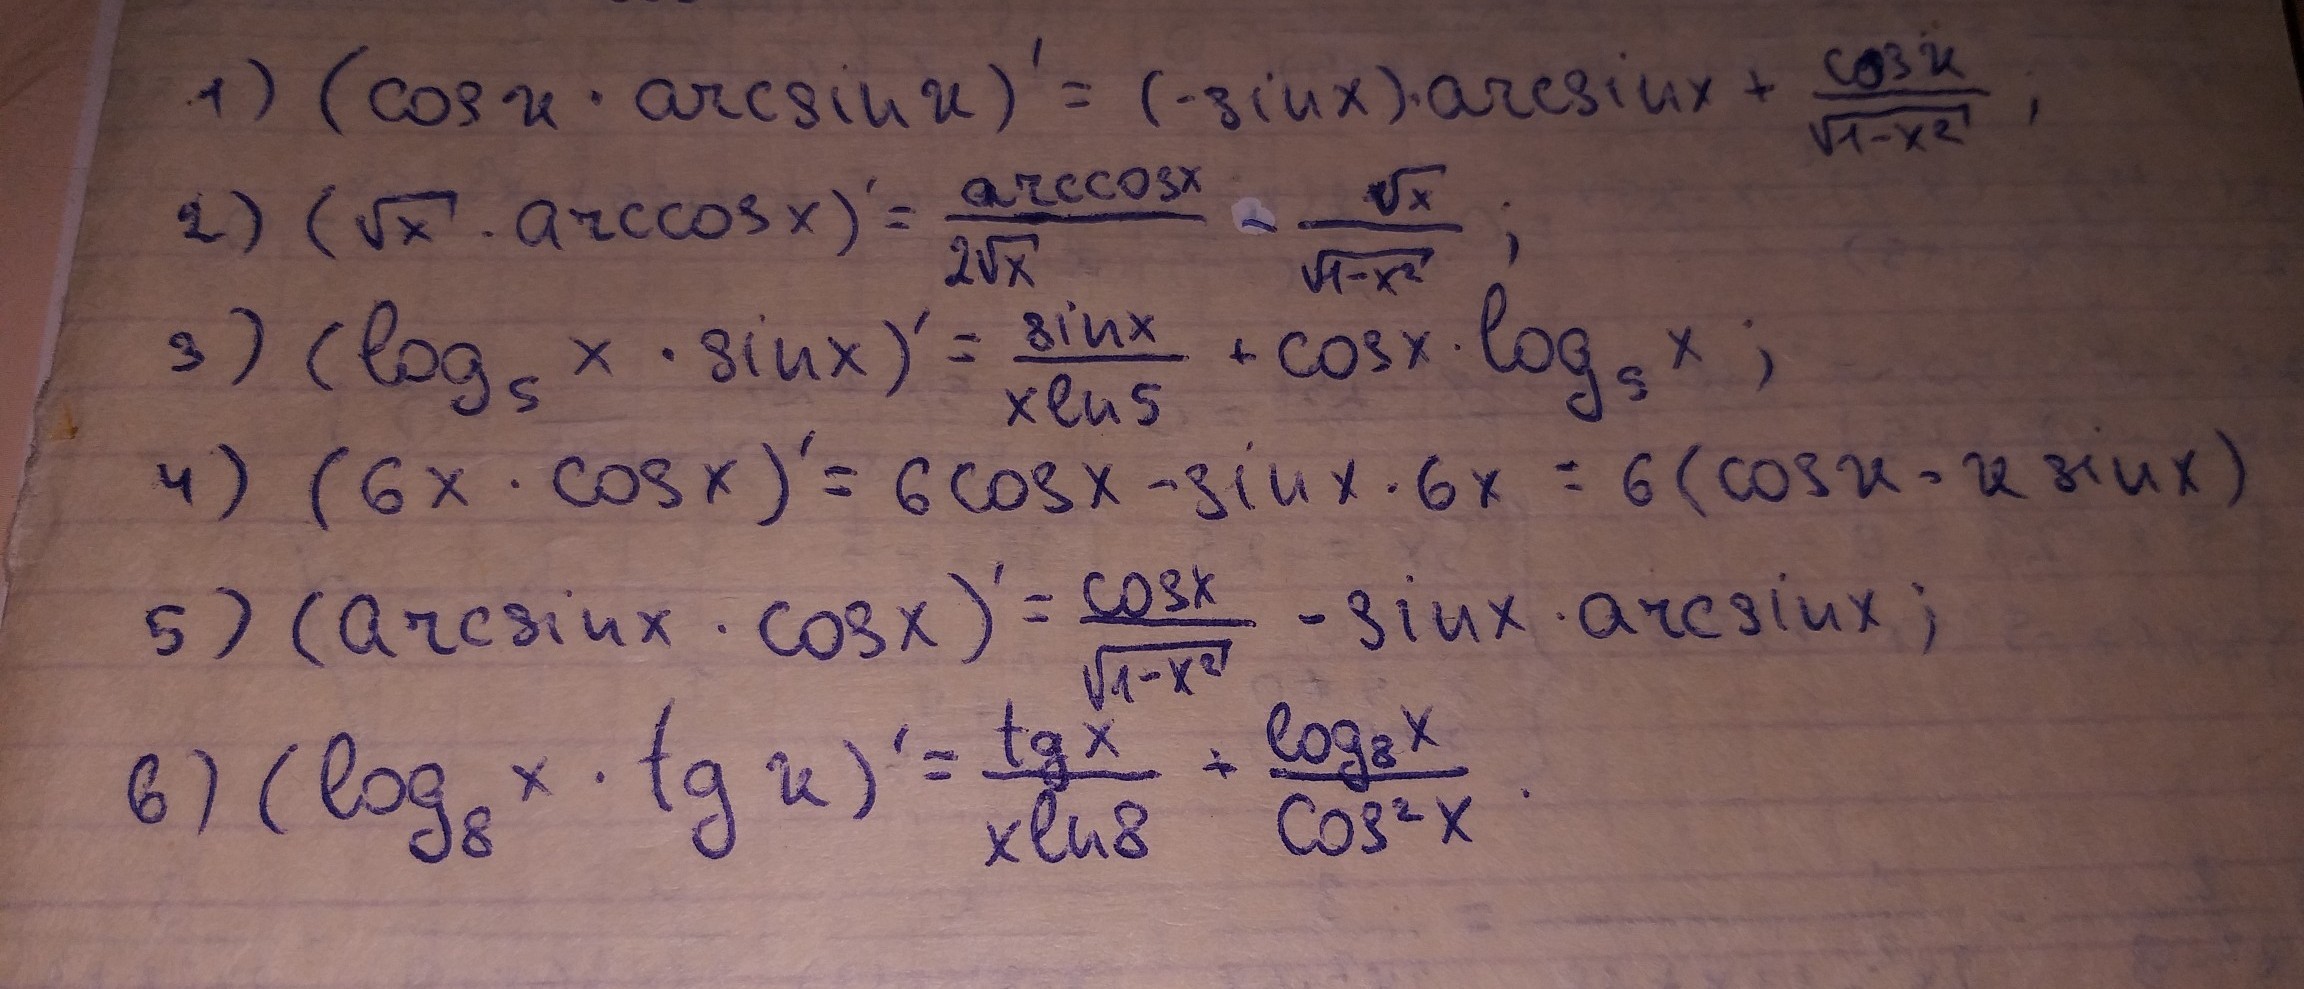 1) (cos x · arcsin x)' = (-sin x) · arcsin x + cos x / √(1-x²) ;
2) (√x · arccos x)' = arccos x / 2√x - √x / √(1-x²) ;
3) (log₅ x · sin x)' = sin x / x ln 5 + cos x · log₅ x ;
4) (6x · cos x)' = 6 cos x - sin x · 6x = 6(cos x - x sin x)
5) (arcsin x · cos x)' = cos x / √(1-x²) - sin x · arcsin x ;
6) (log₈ x · tg x)' = tg x / x ln 8 + log₈ x / cos² x .